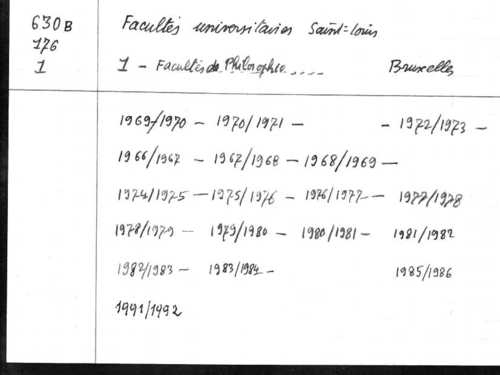 630B Facultés universitaires Saint-Louis
176
1 1 - Facultés de Philosophie .... Bruxelles
1969/1970 - 1970/1971 - - 1972/1973 -
1966/1967 - 1967/1968 - 1968/1969 -
1974/1975 - 1975/1976 - 1976/1977 - 1977/1978
1978/1979 - 1979/1980 - 1980/1981 - 1981/1982
1982/1983 - 1983/1984 - 1985/1986
1991/1992